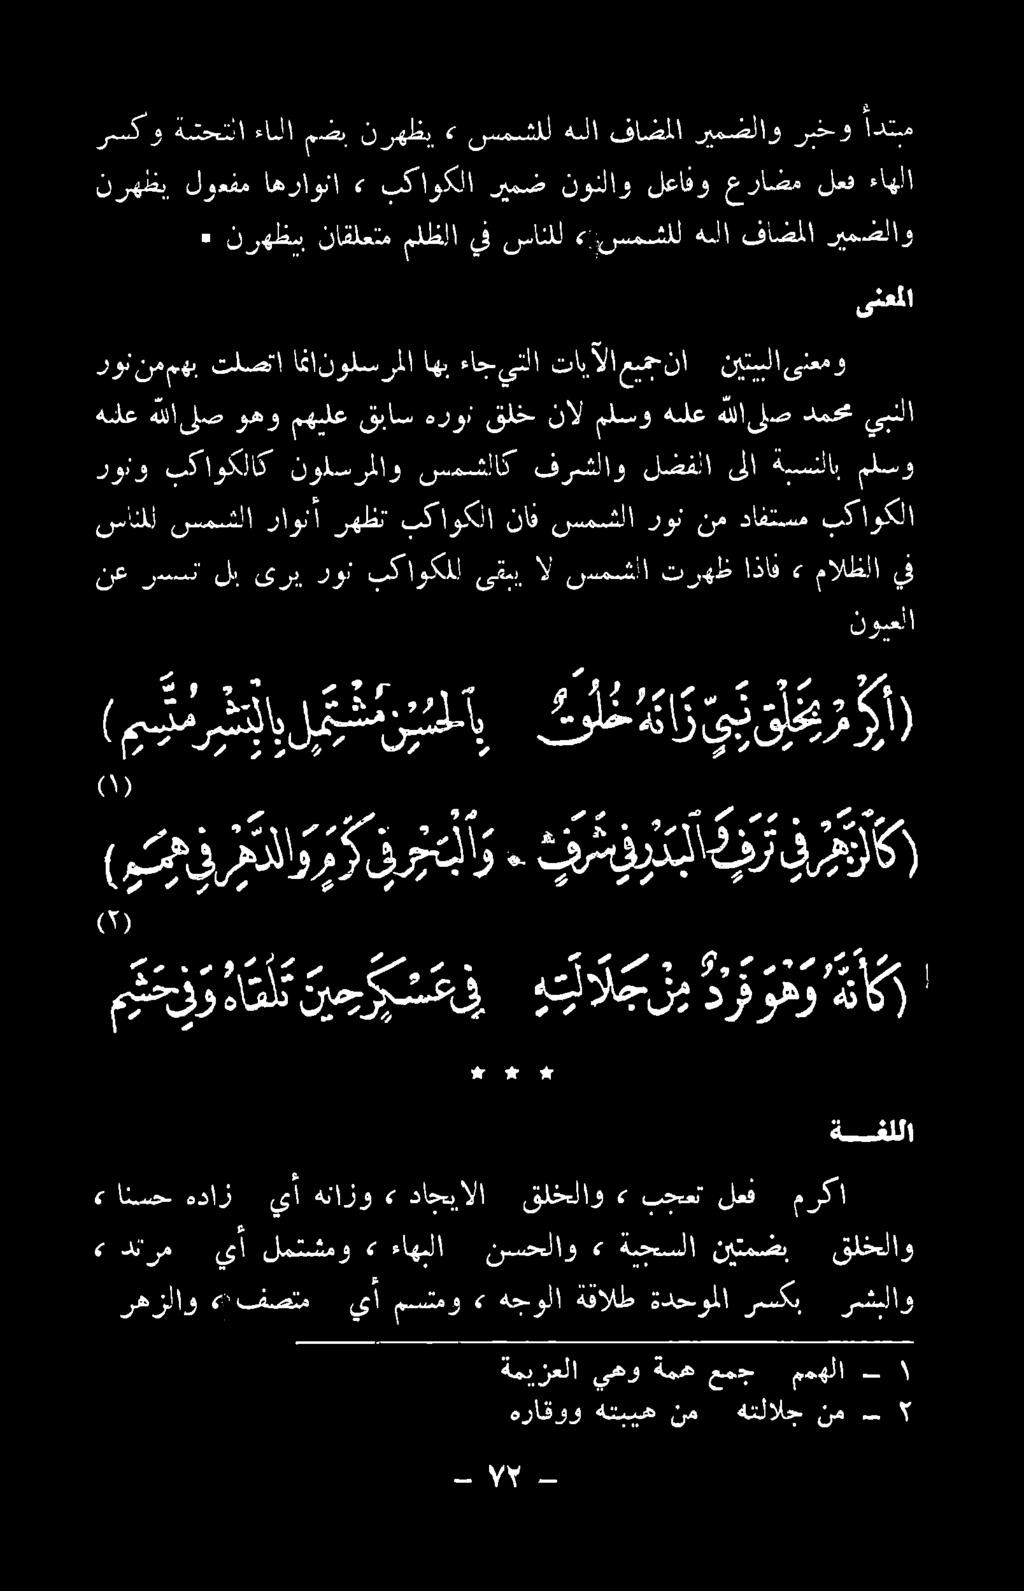 مبتدأ وخبر والضمير المضاف اليه للشمس ، يظهرن بضم الياء التحتية وكسر
الهاء فعل مضارع وفاعل والنون ضمير الكواكب ، انوارها مفعول يظهرن
والضمير المضاف اليه للشمس ، للناس في الظلم متعلقان بيظهرن .
المعنى
ومعنى البيتين ان جميع الآيات التي جاء بها المرسلون انما اتصلت بهم من نور
النبي محمد صلى الله عليه وسلم لان خلق نوره سابق عليهم وهو صلى الله عليه
وسلم بالنسبة الى الفضل والشرف كالشمس والمرسلون كالكواكب ونور
الكواكب مستفاد من نور الشمس فان الكواكب تظهر أنوار الشمس للناس
في الظلام ، فاذا ظهرت الشمس لا يبقى للكواكب نور يرى بل تستر عن
العيون
(أَكْرِمْ بِخَلْقِ نَبِيٍّ زَانَهُ خُلُقٌ بِالْحُسْنِ مُشْتَمِلٍ بِالْبِشْرِ مُتَّسِمِ)
(١)
(كَالزَّهْرِ فِي تَرَفٍ وَالْبَدْرِ فِي شَرَفٍ * وَالْبَحْرِ فِي كَرَمٍ وَالدَّهْرِ فِي هِمَمِ)
(٢)
(كَأَنَّهُ وَهْوَ فَرْدٌ مِنْ جَلَالَتِهِ فِي عَسْكَرٍ حِينَ تَلْقَاهُ وَفِي حَشَمِ
* * *
اللغـــة
اكرم فعل تعجب ، والخلق الايجاد ، وزانه أي زاده حسنا ،
والخلق بضمتين السجية ، والحسن البهاء ، ومشتمل أي مرتد ،
والبشر بكسر الموحدة طلاقة الوجه ، ومتسم أي متصف ، والزهر
١ - الهمم جمع همة وهي العزيمة
٢ - من جلالته من هيبته ووقاره
- ٧٢ -